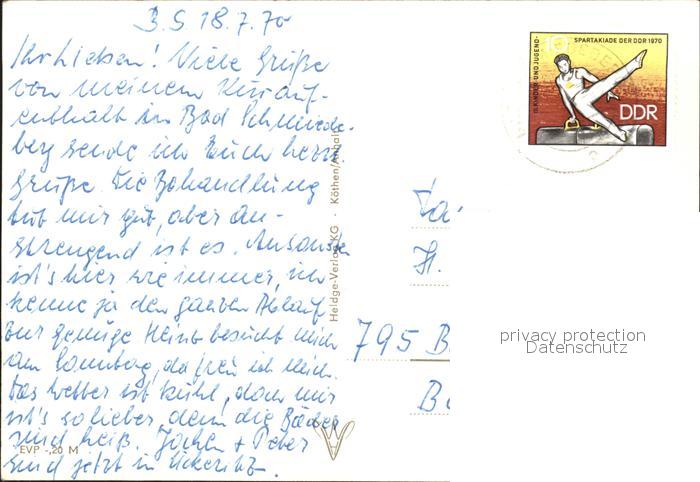 B. S 18.7.70
Ihr Lieben! Viele Grüße
von meinem Kurauf-
enthalt in Bad Schmiede-
berg sende ich Euch herzl.
Grüße. Die Behandlung
tut mir gut, aber an-
strengend ist es. Ansonsten
ist's hier wie immer, ich
kenne ja den ganzen Ablauf
zur genüge. Heinz besucht mich
am Sonntag, da freu ich mich.
Das Wetter ist kühl, doch mir
ist's so lieber, denn die Bäder
sind heiß. Jochen + Peter
sind jetzt in Ückeritz.
EVP -,20 M
Heldge-Verlag KG · Köthen/Anhalt
II. KINDER- UND JUGEND-
SPARTAKIADE DER DDR 1970
10
DDR
H.
795 B
privacy protection
Datenschutz